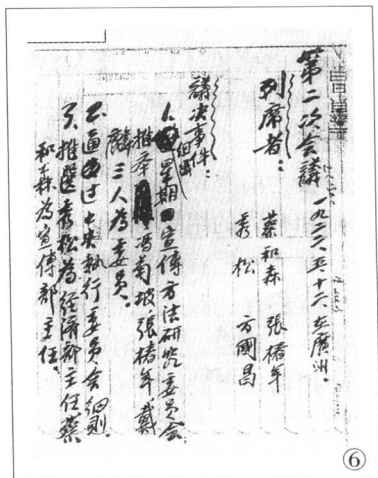 第二次會議 一九二二、五、十二在廣州。
列席者：
蔡和森 張椿年
秀松 方國昌
議決事件：
1、組織星期日宣傳方法研究委員会，
推舉馮菊坡張椿年戴
麟三人為委員。
2、通过中央執行委員会细則。
3、推選秀松為經濟部主任蔡
和森為宣傳部主任。
⑥